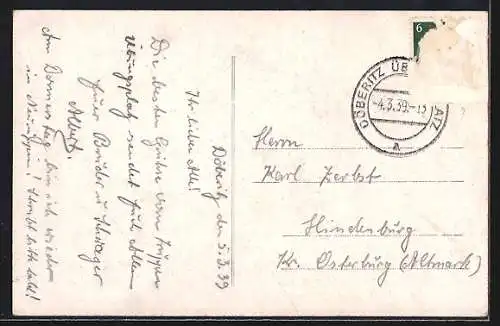 Döberitz den 5.3.39
Ihr lieben Alle!
Die besten Grüße vom Truppen
übungsplatz sendet Euch Allen
Euer Bruder u. Schwager
Albert.
Am Donnerstag bin ich wieder
in Schreibt bitte bald!
6
DÖBERITZ ÜB ATZ
-4.3.39.-13
a
Herrn
Karl Zerbst
Hindenburg
Kr. Osterburg (Altmark)